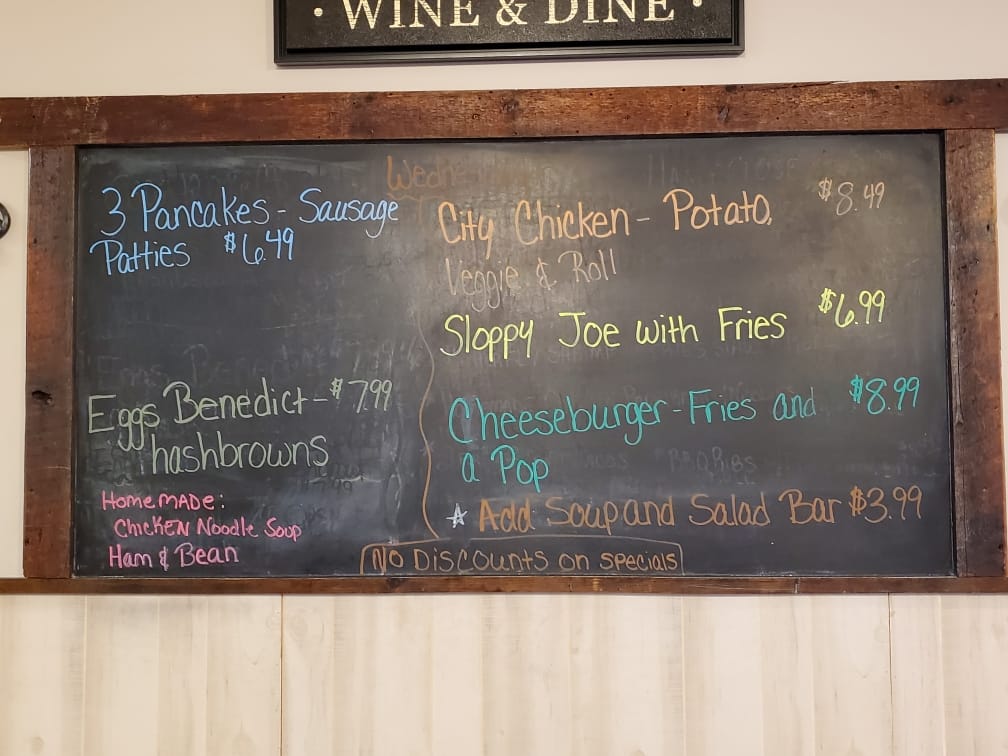 • WINE & DINE •
Wednesday
3 Pancakes - Sausage
Patties $6.49
Eggs Benedict - $7.99
hashbrowns
HomeMADE:
CHicKEN Noodle Soup
Ham & Bean
City Chicken - Potato, $8.49
Veggie & Roll
Sloppy Joe with Fries $6.99
Cheeseburger - Fries and $8.99
a Pop
☆ Add Soup and Salad Bar $3.99
NO DISCOUNTS on SPECIALS